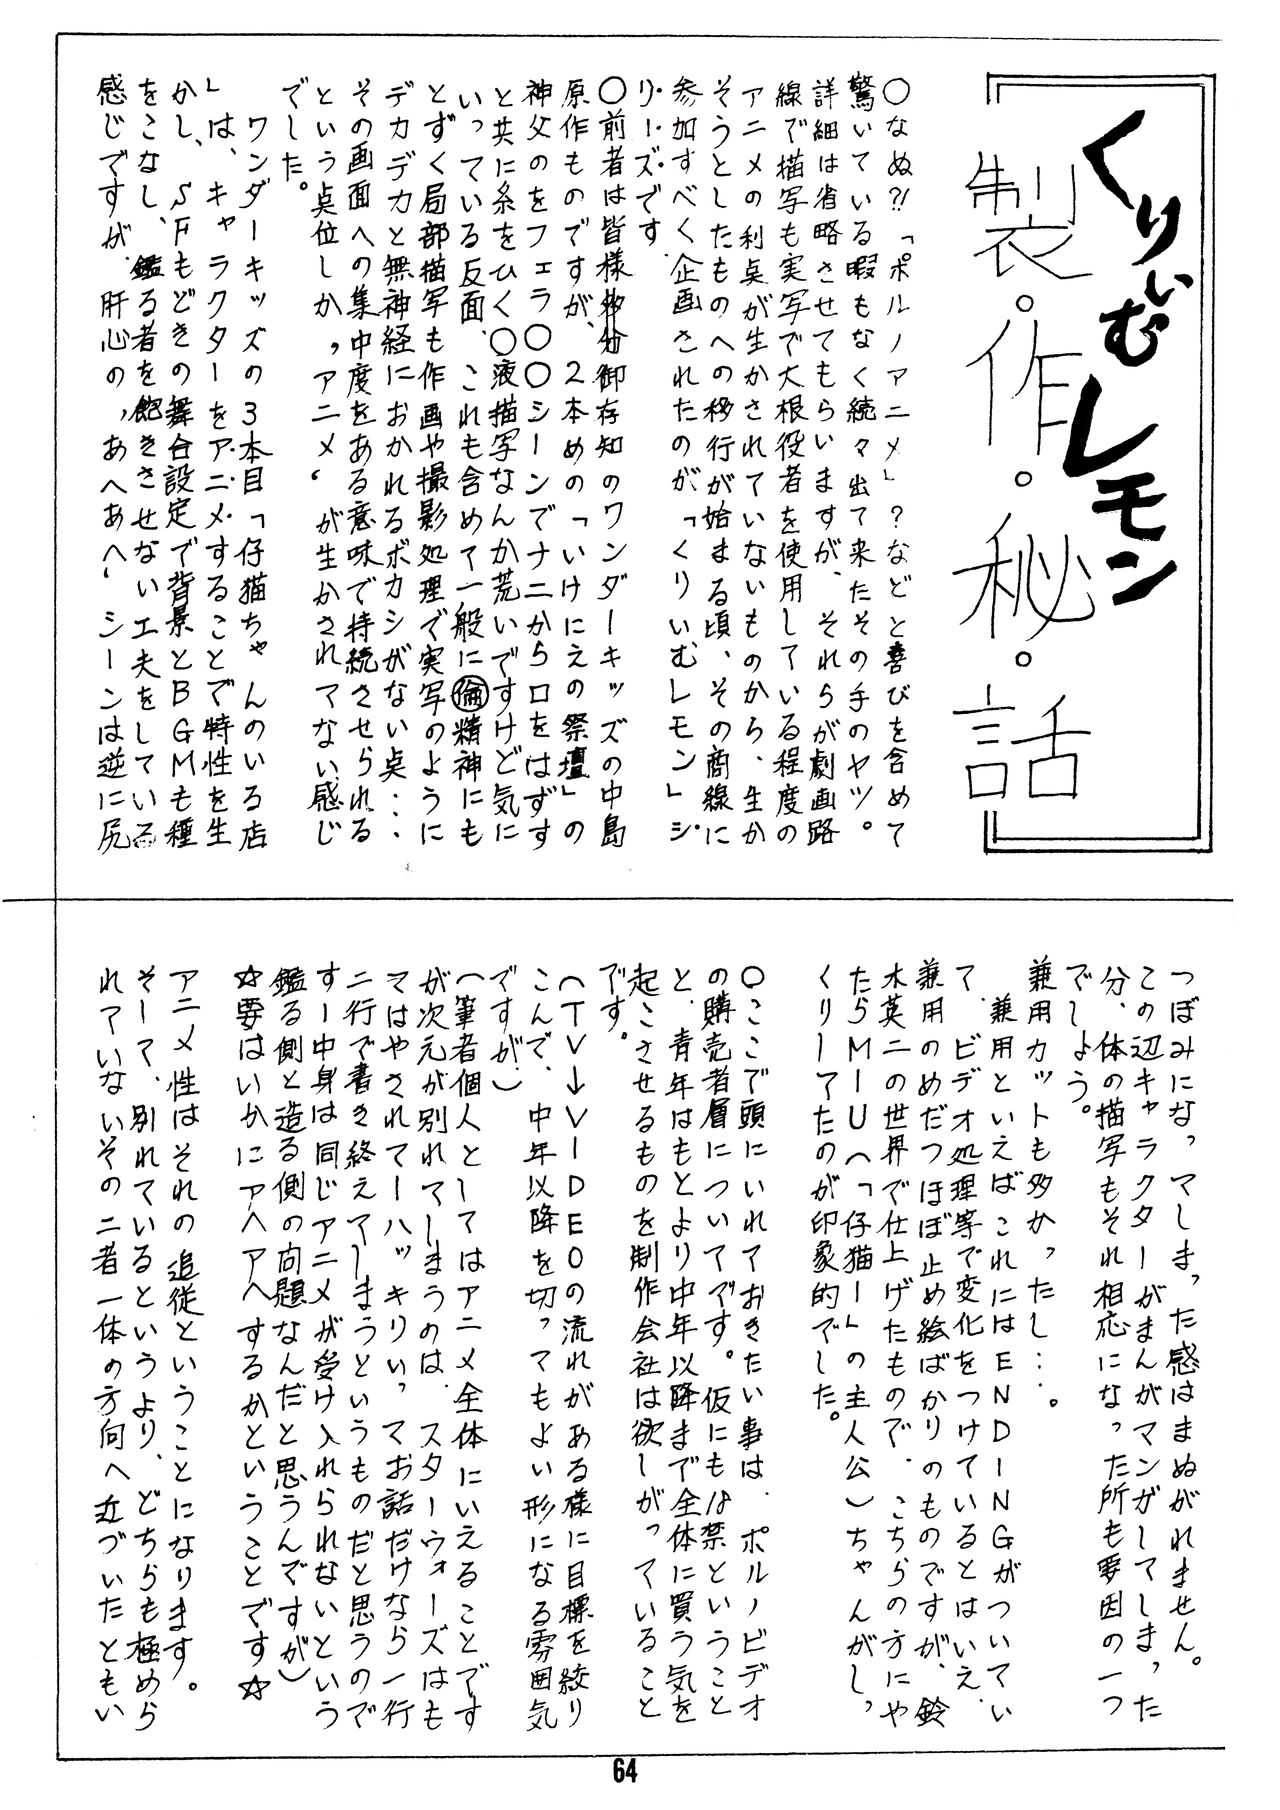 くりぃむレモン
製。作。秘。話
〇なぬ⁈「ポルノアニメ」？などと喜びを含めて
驚いている暇もなく続々出て来たその手のヤツ。
詳細は省略させてもらいますが、それらが劇画路
線で描写も実写で大根役者を使用している程度の
アニメの利点が生かされていないものから、生か
そうとしたものへの移行が始まる頃、その商線に
参加すべく企画されたのが、「くりいむレモン」シ
リーズです
〇前者は皆様多分御存知のワンダーキッズの中島
原作ものですが、2本めの「いけにえの祭壇」の
神父のをフェラ〇〇シーンでナニから口をはずす
と共に糸をひく〇液描写なんか荒いですけど気に
いっている反面、これも含めて一般に倫精神にも
とずく局部描写も作画や撮影処理で実写のように
デカデカと無神経におかれるボカシがない点‥‥
その画面への集中度をある意味で持続させられる
という点位しか、〝アニメ〟が生かされてない感じ
でした。
ワンダーキッズの3本目「仔猫ちゃんのいる店
」は、キャラクターをアニメすることで特性を生
かし、SFもどきの舞台設定で背景とBGMも種
をこなし、鑑る者を飽きさせない工夫をしている
感じですが、肝心の〝あへあへ〟シーンは逆に尻
つぼみになってしまった感はまぬがれません。
この辺キャラクターがまんがマンがしてしまった
分、体の描写もそれ相応になった所も要因の一つ
でしょう。
兼用カットも多かったし‥‥。
兼用といえばこれにはENDINGがついてい
て、ビデオ処理等で変化をつけているとはいえ、
兼用のめだつほぼ止め絵ばかりのものですが、鈴
木英二の世界で仕上げたもので、こちらの方にや
たらMーU（「仔猫ー」の主人公）ちゃんがしっ
くりしてたのが印象的でした。
〇ここで頭にいれておきたい事は、ポルノビデオ
の購売者層についてです。仮にも18禁ということ
と、青年はもとより中年以降まで全体に買う気を
起こさせるものを制作会社は欲しがっていること
です。
（TV→VIDEOの流れがある様に目標を絞り
こんで、中年以降を切ってもよい形になる雰囲気
ですが）
（筆者個人としてはアニメ全体にいえることです
が次元が別れてしまうのは、スターウォーズはも
てはやされてーハッキリいってお話だけなら一行
二行で書き終えてしまうというものだと思うので
すー中身は同じアニメが受け入れられないという
鑑る側と造る側の向題なんだと思うんですが）
☆要はいかにアヘアヘするかということです☆
アニメ性はそれの追従ということになります。
そして、別れているというより、どちらも極めら
れていないその二者一体の方向へ近づいたともい
64